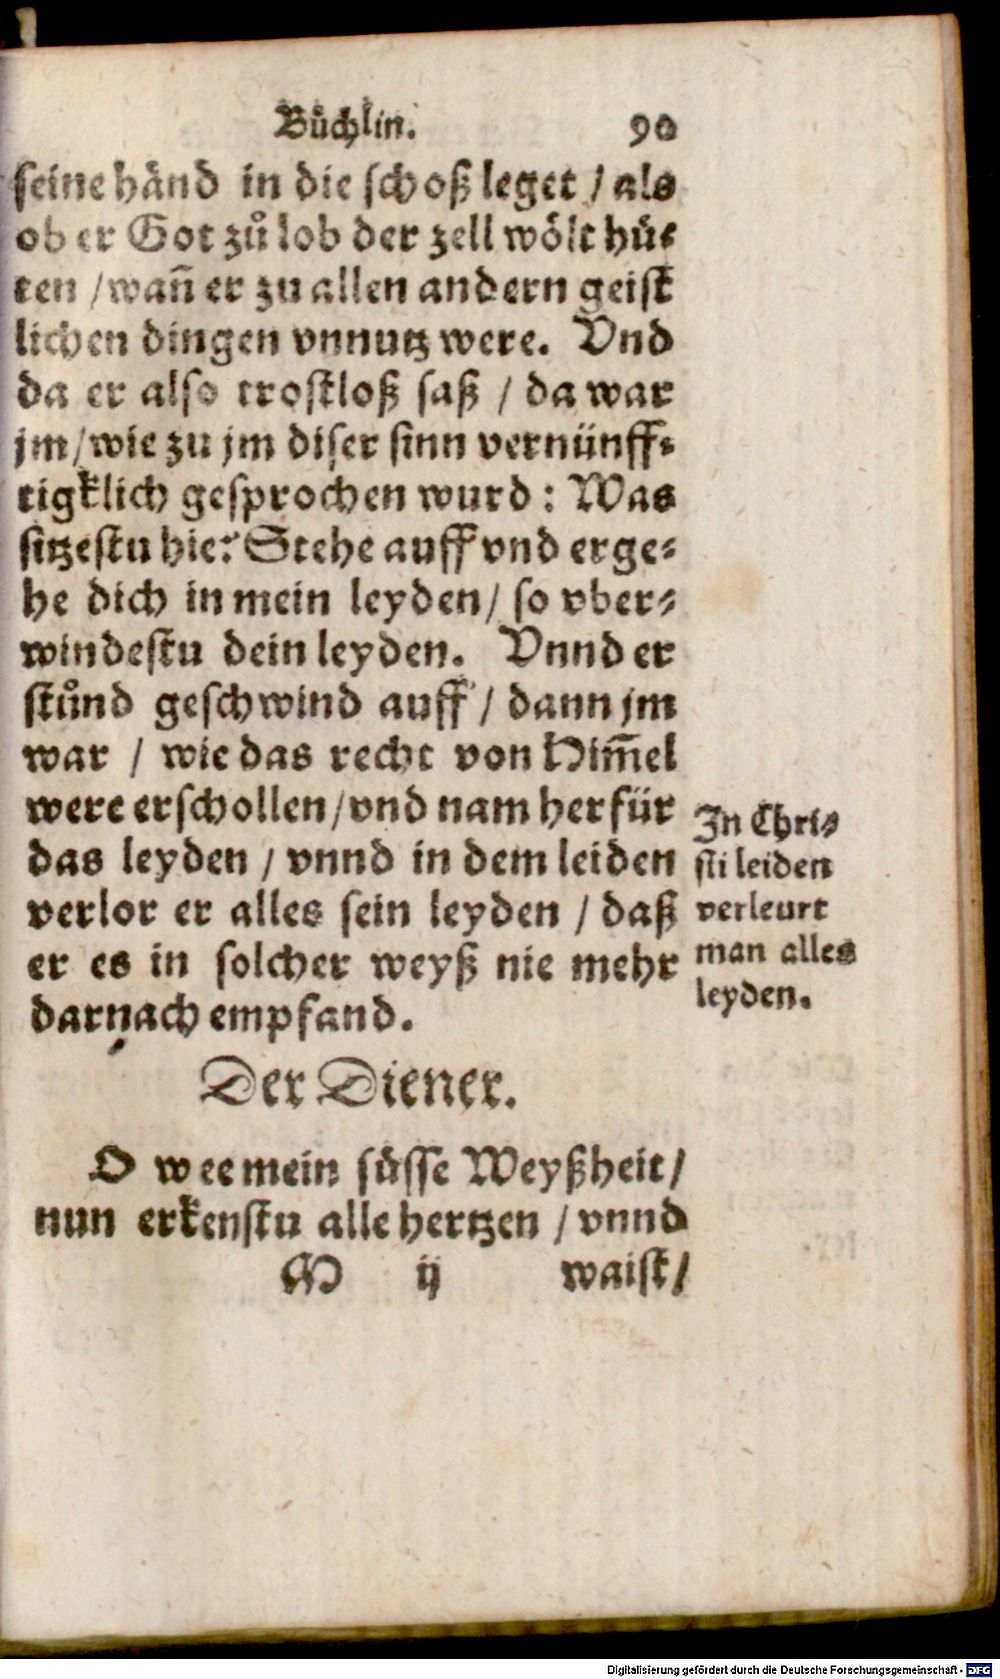 Bůchlin. 90
seine händ in die schoß leget / als
ob er Got zů lob der zell wölt hü-
ten / wañ er zu allen andern geist
lichen dingen vnnutz were. Vnd
da er also trostloß saß / da war
jm / wie zu jm diser sinn vernünff-
tigklich gesprochen wurd: Was
sitzestu hie? Stehe auff vnd erge-
he dich in mein leyden / so vber-
windestu dein leyden. Vnnd er
stůnd geschwind auff / dann jm
war / wie das recht von Him̃el
were erschollen / vnd nam herfür
das leyden / vnnd in dem leiden
verlor er alles sein leyden / daß
er es in solcher weyß nie mehr
darnach empfand.
In Chri-
sti leiden
verleurt
man alles
leyden.
Der Diener.
O wee mein süsse Weyßheit /
nun erkenstu alle hertzen / vnnd
M ij waist /
Digitalisierung gefördert durch die Deutsche Forschungsgemeinschaft - DFG